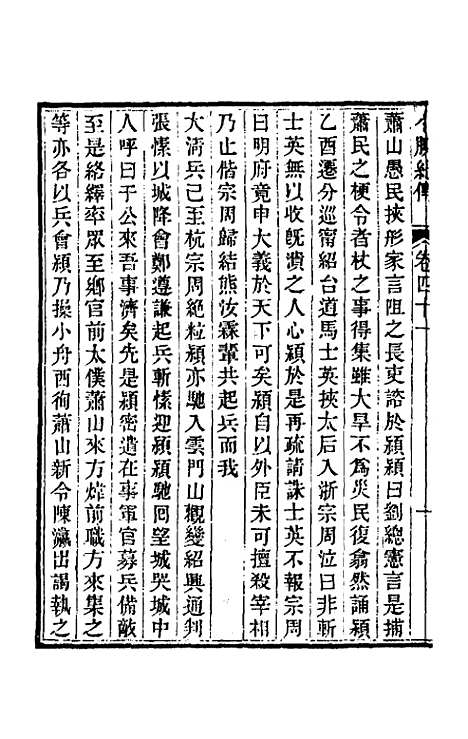 蕭山愚民挾形家言阻之長吏諮於潁潁曰劉總憲言是捕
蕭民之梗令者杖之事得集雖大旱不爲災民復翕然誦潁
乙酉遷分巡甯紹台道馬士英挾太后入浙宗周泣曰非斬
士英無以收旣潰之人心潁於是再疏請誅士英不報宗周
曰明府竟申大義於天下可矣潁自以外臣未可擅殺宰相
乃止偕宗周歸結熊汝霖輩共起兵而我
大淸兵已至杭宗周絶粒潁亦馳入雲門山觀變紹興通判
張愫以城降會鄭遵謙起兵斬愫迎潁潁馳囘望城哭城中
人呼曰于公來吾事濟矣先是潁密遣在事軍官募兵備敵
至是絡繹率眾至鄉官前太僕蕭山來方煒前職方來集之
等亦各以兵會潁乃操小舟西徇蕭山新令陳瀛出謁執之
卷四十一